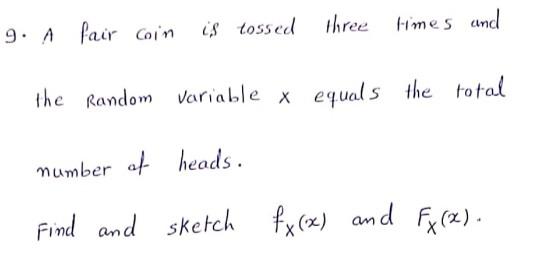 9. A fair coin is tossed three times and
the Random variable x equals the total
number of heads.
Find and sketch fx(x) and Fx(x).